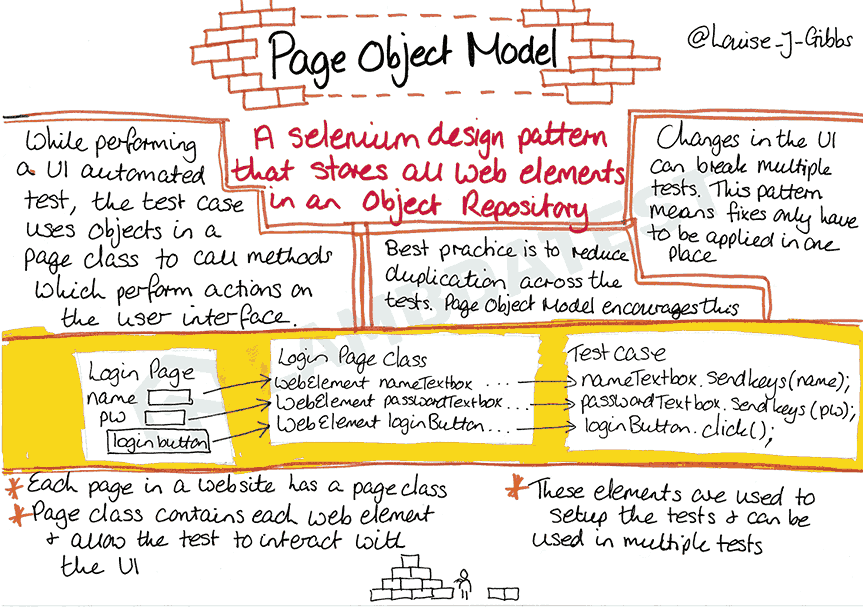 Page Object Model
@Louise-J-Gibbs
While performing
a UI automated
test, the test case
uses objects in a
page class to call methods
which perform actions on
the user interface.
A selenium design pattern
that stores all web elements
in an Object Repository
Changes in the UI
can break multiple
tests. This pattern
means fixes only have
to be applied in one
place
Best practice is to reduce
duplication across the
tests. Page Object Model encourages this
LAMBDATEST
Login Page
name
pw
login button
Login Page Class
WebElement nameTextbox ...
WebElement passwordTextbox...
WebElement loginButton...
Test case
nameTextbox.sendkeys(name);
passwordTextbox.sendkeys(pw);
loginButton.click();
* Each page in a website has a page class
* Page class contains each web element
& allow the test to interact with
the UI
* These elements are used to
setup the tests & can be
used in multiple tests